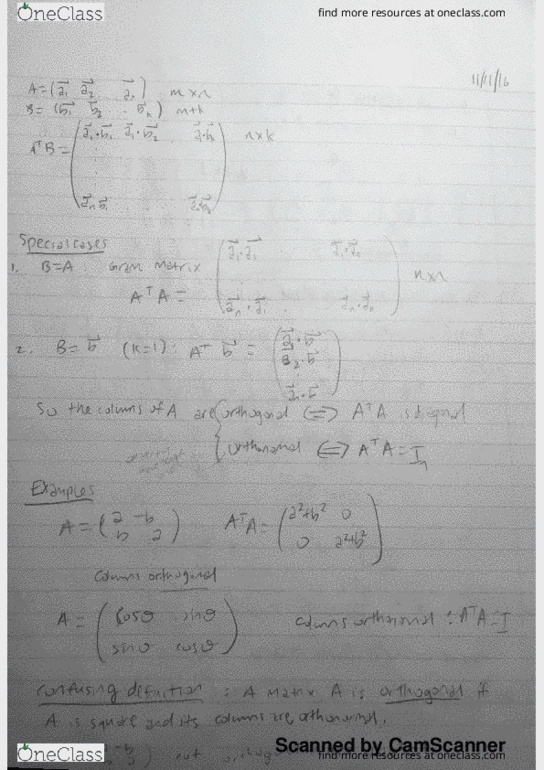 OneClass find more resources at oneclass.com
11/11/16
A = (a⃗₁ a⃗₂ a⃗ₙ) m×n
B = (b⃗₁ b⃗₂ . b⃗ₖ) m×k
AᵀB = (a⃗₁·b⃗₁ a⃗₁·b⃗₂ a⃗₁·b⃗ₖ) n×k
a⃗ₙ·b⃗₁
Special cases
1. B=A : Gram matrix (a⃗₁·a⃗₁ a⃗₁·a⃗ₙ)
AᵀA = (a⃗ₙ·a⃗₁ a⃗ₙ·a⃗ₙ) n×n
2. B = b⃗ (k=1) : Aᵀ b⃗ = (a⃗₁·b⃗
a⃗₂·b⃗
a⃗ₙ·b⃗)
So the columns of A are { orthogonal ⟺ AᵀA is diagonal
orthonormal ⟺ AᵀA = Iₙ
Examples
A = (a -b
b a) AᵀA = (a²+b² 0
0 a²+b²)
Columns orthogonal
A = (cosθ sinθ
sinθ cosθ) columns orthonormal : AᵀA = I
Confusing definition : A matrix A is orthogonal if
A is square and its columns are orthonormal.
not
Scanned by CamScanner
OneClass find more resources at oneclass.com